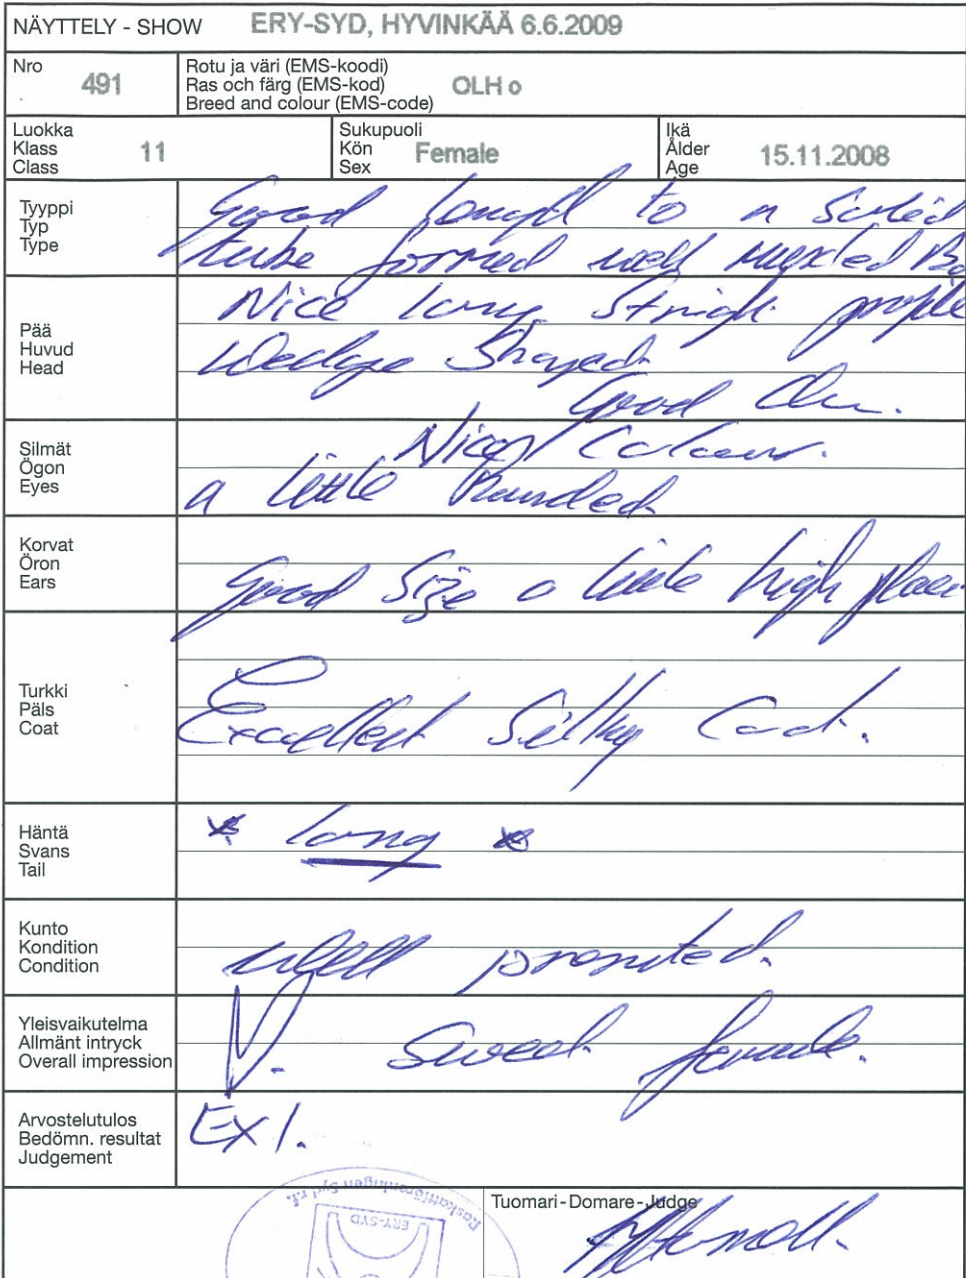 NÄYTTELY - SHOW ERY-SYD, HYVINKÄÄ 6.6.2009
Nro 491
Rotu ja väri (EMS-koodi)
Ras och färg (EMS-kod) OLH o
Breed and colour (EMS-code)
Luokka
Klass 11
Class
Sukupuoli
Kön Female
Sex
Ikä
Ålder 15.11.2008
Age
Tyyppi
Typ
Type
Good to a
tube formed well
Pää
Huvud
Head
Nice long profile
Wedge Shaped
Good
Silmät
Ögon
Eyes
Nice Colour.
a little Rounded.
Korvat
Öron
Ears
Good Size a little high
Turkki
Päls
Coat
Excellent Silky Coat.
Häntä
Svans
Tail
* long *
Kunto
Kondition
Condition
well
Yleisvaikutelma
Allmänt intryck
Overall impression
V. Sweet female.
Arvostelutulos
Bedömn. resultat
Judgement
EX 1.
Tuomari-Domare-Judge
Raskattföreningen Syd r.f.
ERY-SYD